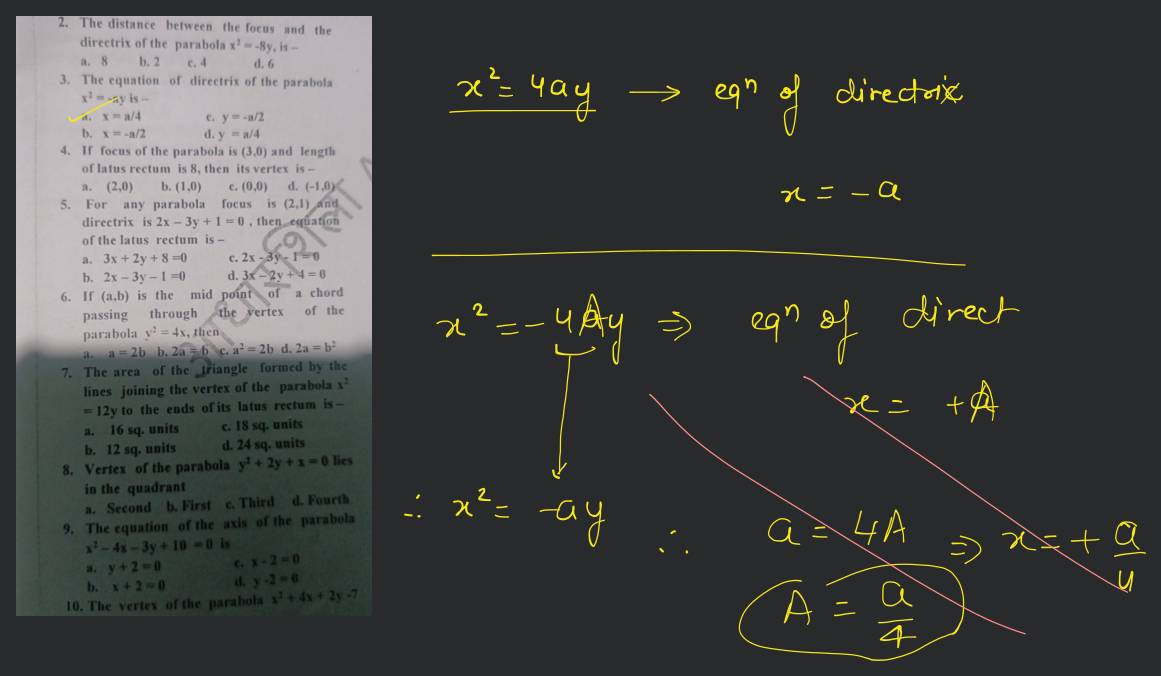 2. The distance between the focus and the
directrix of the parabola x² = -8y, is –
a. 8 b. 2 c. 4 d. 6
3. The equation of directrix of the parabola
x² = -ay is –
a. x = a/4 c. y = -a/2
b. x = -a/2 d. y = a/4
4. If focus of the parabola is (3,0) and length
of latus rectum is 8, then its vertex is –
a. (2,0) b. (1,0) c. (0,0) d. (-1,0)
5. For any parabola focus is (2,1) and
directrix is 2x – 3y + 1 = 0 , then equation
of the latus rectum is –
a. 3x + 2y + 8 =0 c. 2x - 3y - 1 = 0
b. 2x – 3y – 1 =0 d. 3x – 2y + 4 = 0
6. If (a,b) is the mid point of a chord
passing through the vertex of the
parabola y² = 4x, then
a. a = 2b b. 2a = b c. a² = 2b d. 2a = b²
7. The area of the triangle formed by the
lines joining the vertex of the parabola x²
= 12y to the ends of its latus rectum is –
a. 16 sq. units c. 18 sq. units
b. 12 sq. units d. 24 sq. units
8. Vertex of the parabola y² + 2y + x = 0 lies
in the quadrant
a. Second b. First c. Third d. Fourth
9. The equation of the axis of the parabola
x² – 4x – 3y + 10 = 0 is
a. y + 2 = 0 c. x - 2 = 0
b. x + 2 = 0 d. y -2 = 0
10. The vertex of the parabola x² + 4x + 2y -7
x² = 4ay → eqⁿ of directrix
x = - a
x² = - 4Ay ⇒ eqⁿ of direct
x = + A
∴ x² = -ay
∴ a = 4A ⇒ x = + a/4
A = a/4